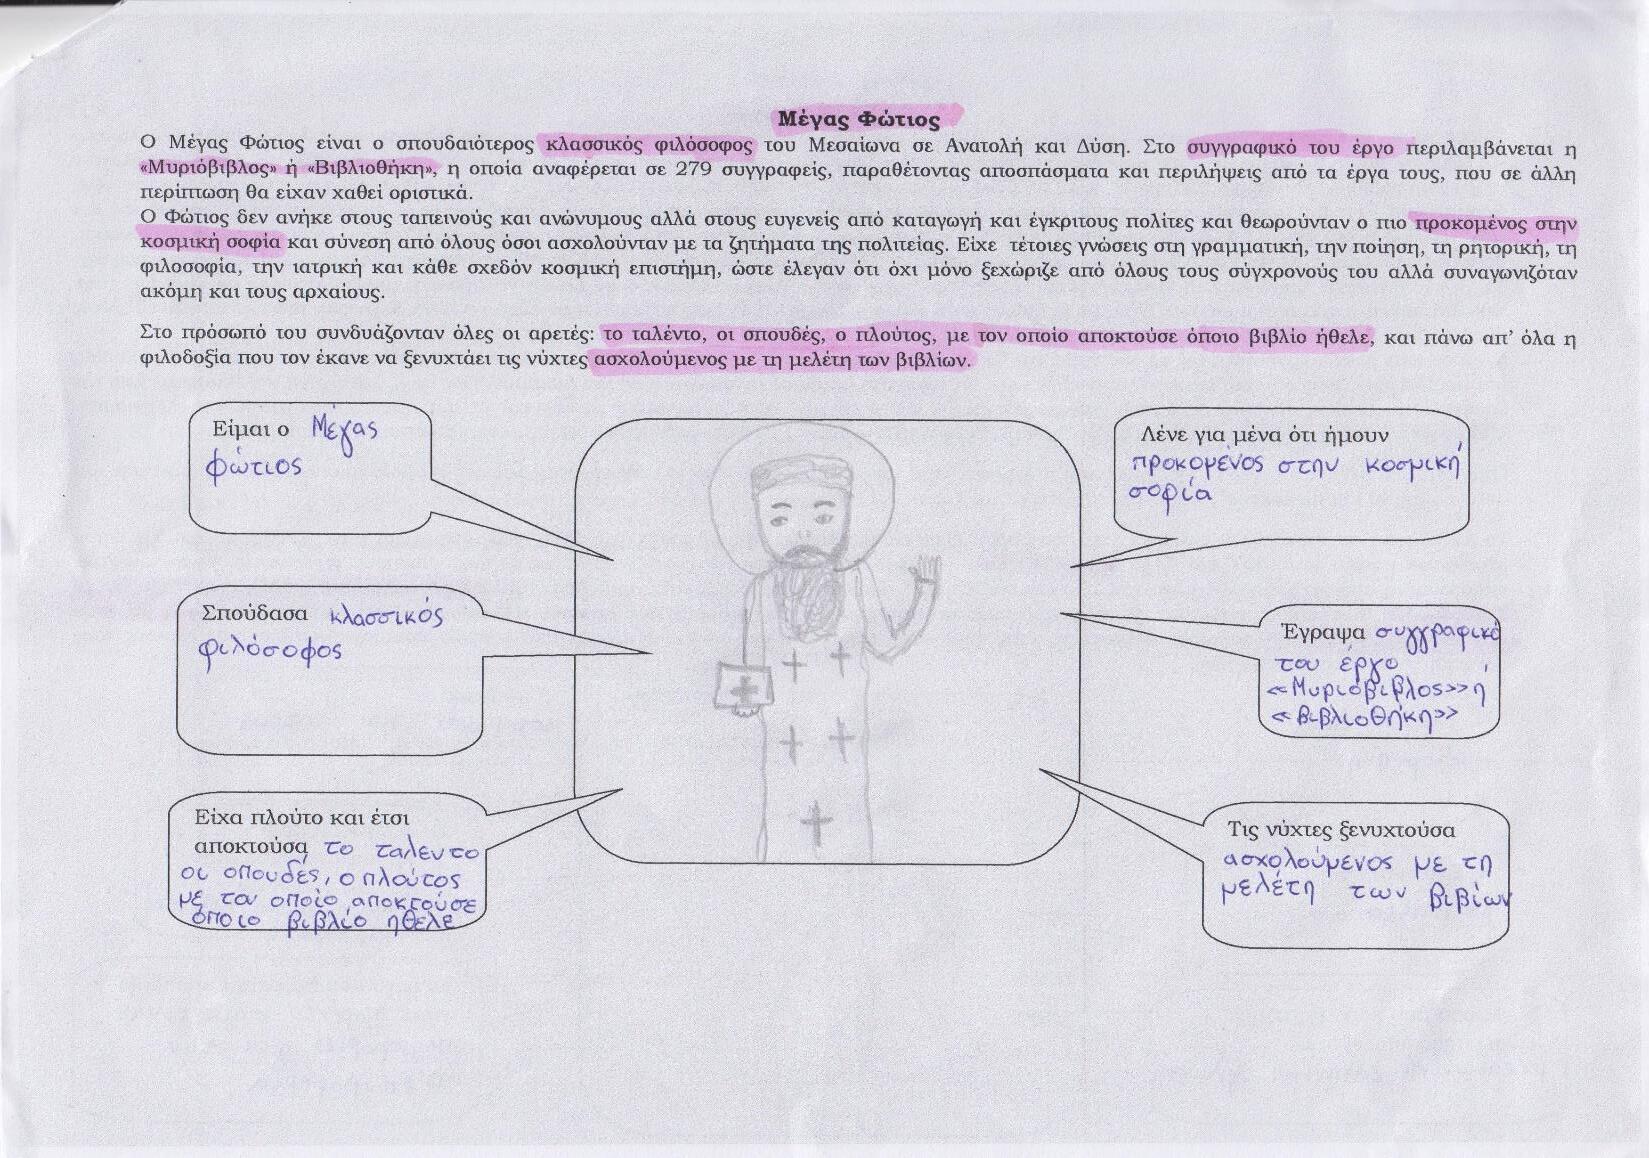 Μέγας Φώτιος
Ο Μέγας Φώτιος είναι ο σπουδαιότερος κλασσικός φιλόσοφος του Μεσαίωνα σε Ανατολή και Δύση. Στο συγγραφικό του έργο περιλαμβάνεται η
«Μυριόβιβλος» ή «Βιβλιοθήκη», η οποία αναφέρεται σε 279 συγγραφείς, παραθέτοντας αποσπάσματα και περιλήψεις από τα έργα τους, που σε άλλη
περίπτωση θα είχαν χαθεί οριστικά.
Ο Φώτιος δεν ανήκε στους ταπεινούς και ανώνυμους αλλά στους ευγενείς από καταγωγή και έγκριτους πολίτες και θεωρούνταν ο πιο προκομένος στην
κοσμική σοφία και σύνεση από όλους όσοι ασχολούνταν με τα ζητήματα της πολιτείας. Είχε τέτοιες γνώσεις στη γραμματική, την ποίηση, τη ρητορική, τη
φιλοσοφία, την ιατρική και κάθε σχεδόν κοσμική επιστήμη, ώστε έλεγαν ότι όχι μόνο ξεχώριζε από όλους τους σύγχρονούς του αλλά συναγωνιζόταν
ακόμη και τους αρχαίους.
Στο πρόσωπό του συνδυάζονταν όλες οι αρετές: το ταλέντο, οι σπουδές, ο πλούτος, με τον οποίο αποκτούσε όποιο βιβλίο ήθελε, και πάνω απ' όλα η
φιλοδοξία που τον έκανε να ξενυχτάει τις νύχτες ασχολούμενος με τη μελέτη των βιβλίων.
Είμαι ο Μέγας
φώτιος
Σπούδασα κλασσικός
φιλόσοφος
Είχα πλούτο και έτσι
αποκτούσα το ταλεντο
οι σπουδές, ο πλούτος
με τον οποίο αποκτούσε
όποιο βιβλίο ήθελε
Λένε για μένα ότι ήμουν
προκομένος στην κοσμική
σοφία
Έγραψα συγγραφικό
του έργο
«Μυριόβιβλος» ή
«Βιβλιοθήκη»
Τις νύχτες ξενυχτούσα
ασχολούμενος με τη
μελέτη των βιβίων